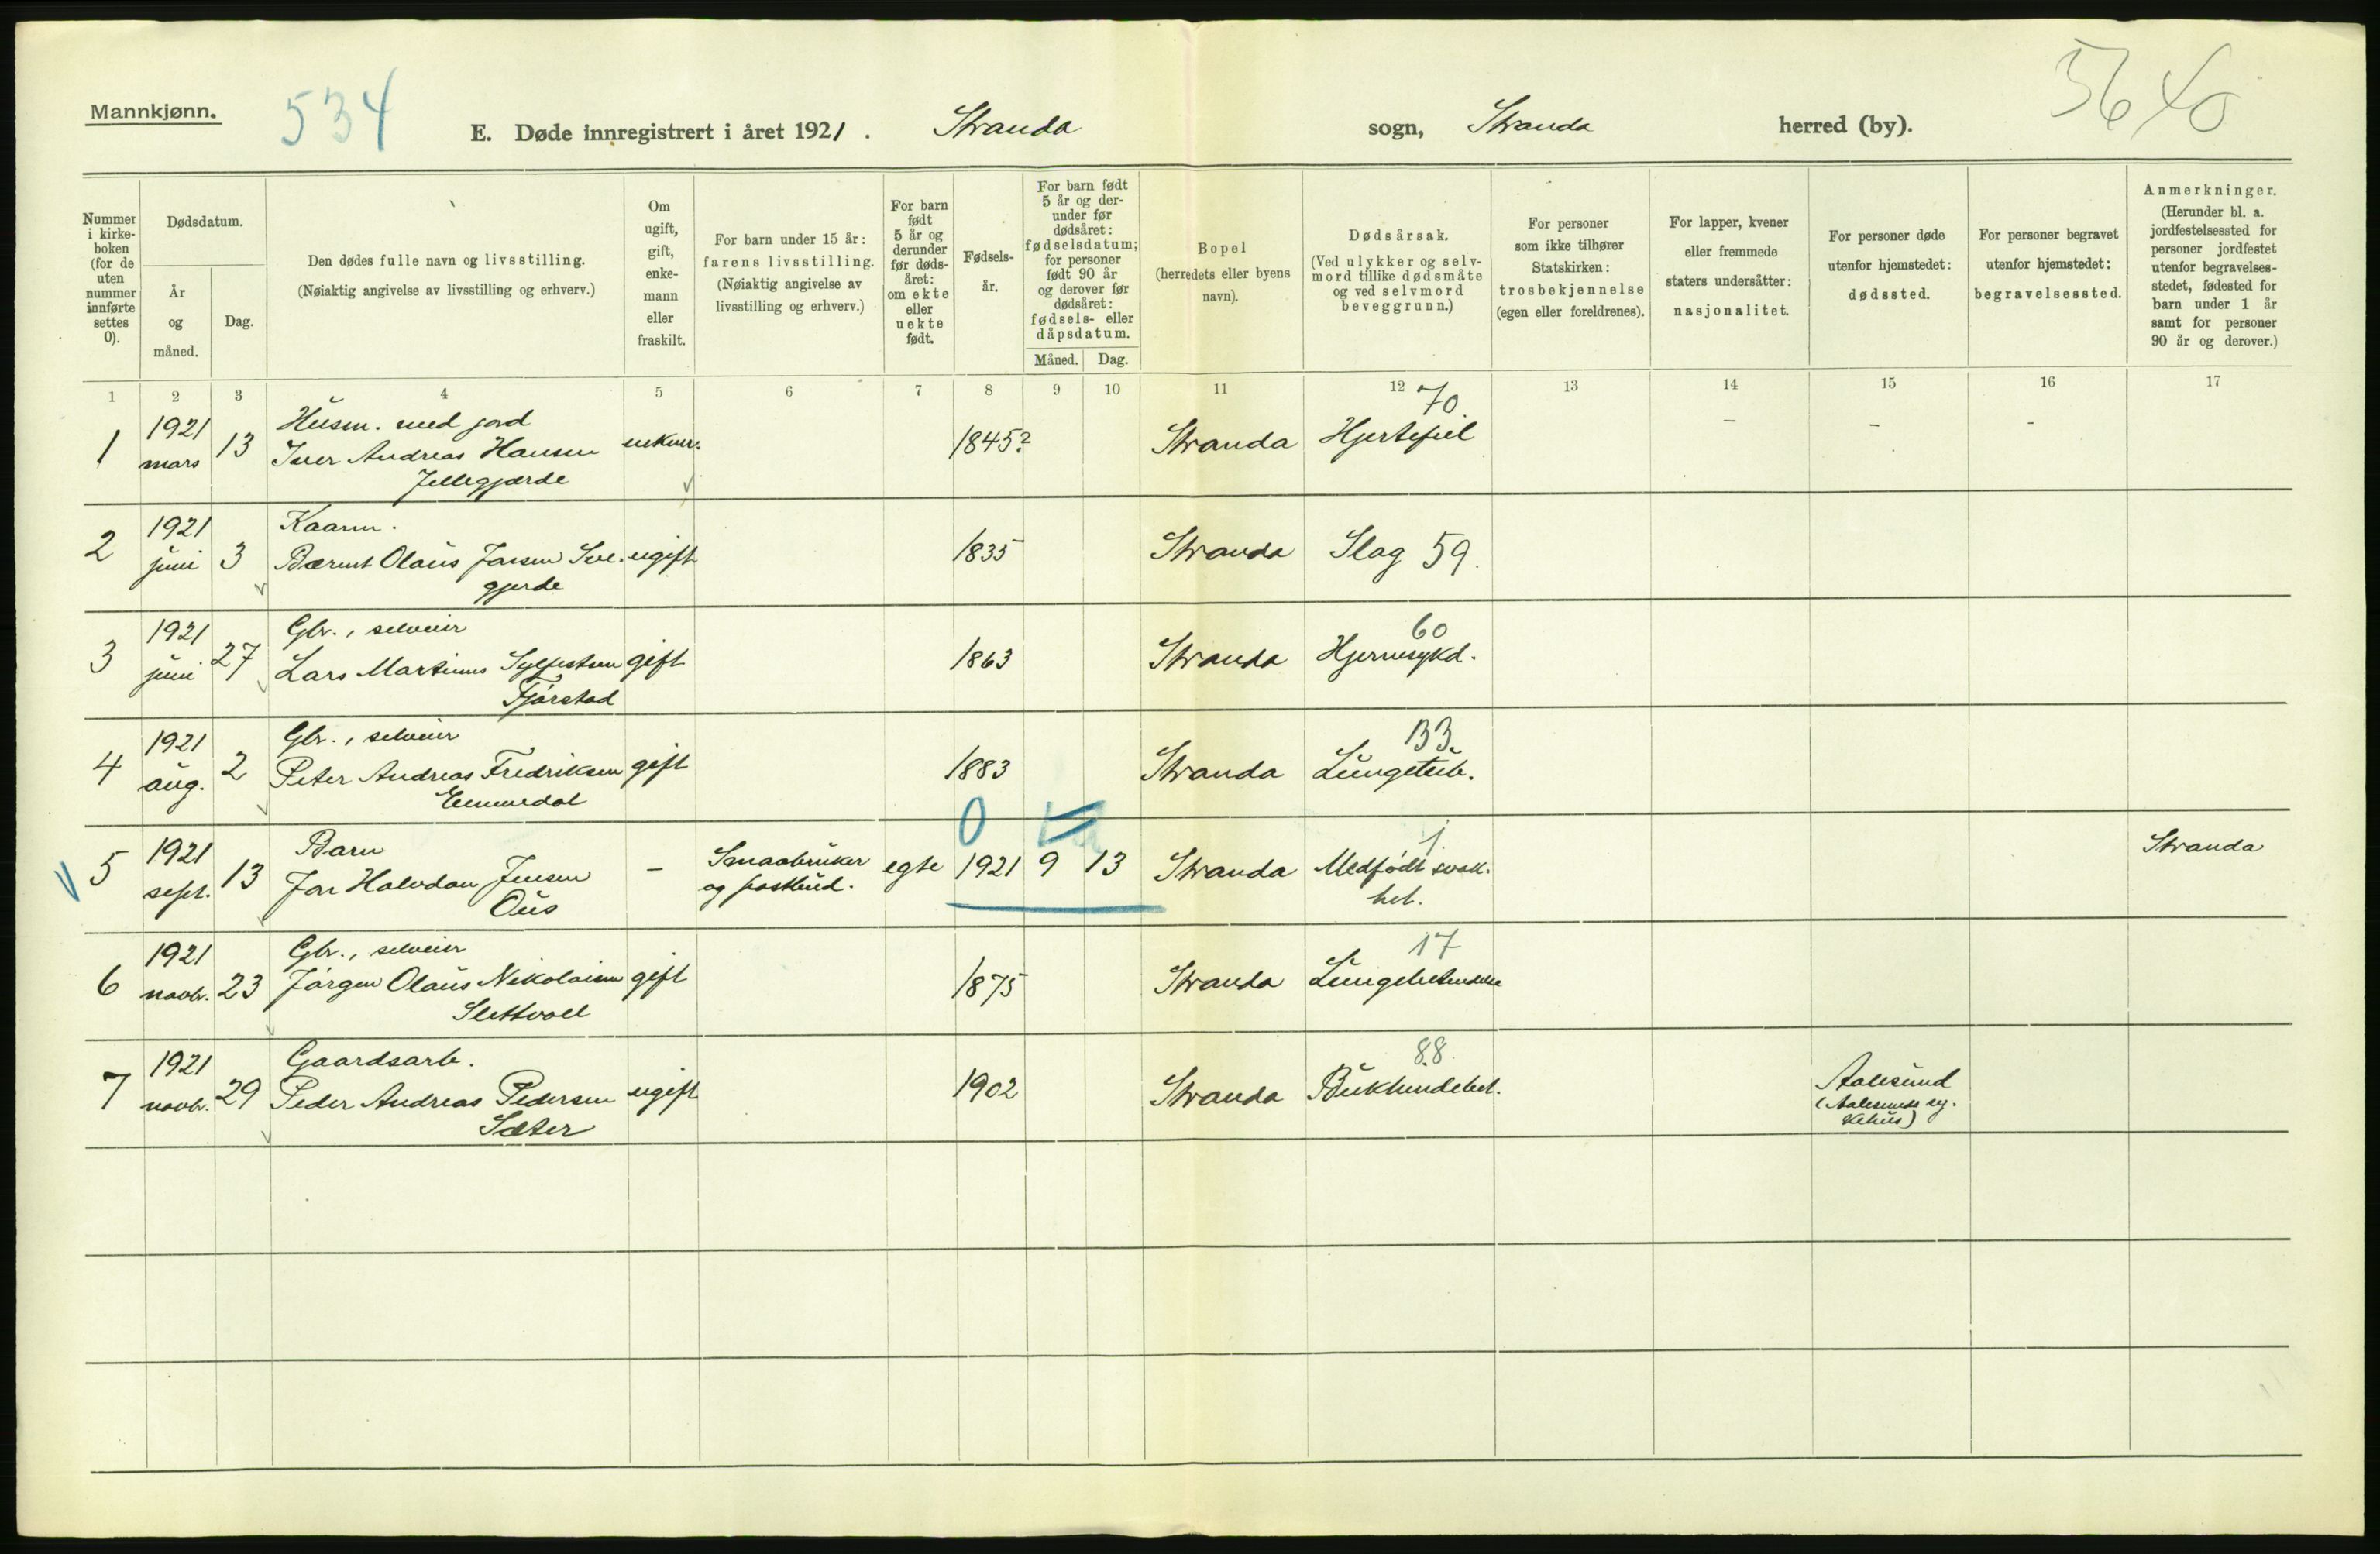 Mannkjønn.
534
E. Døde innregistrert i året 1921. Stranda sogn, Stranda herred (by).
5640
Nummer i kirke-boken (for de uten nummer innførte settes 0).
Dødsdatum.
År og måned.
Dag.
Den dødes fulle navn og livsstilling.
(Nøiaktig angivelse av livsstilling og erhverv.)
Om ugift, gift, enke-mann eller fraskilt.
For barn under 15 år: farens livsstilling.
(Nøiaktig angivelse av livsstilling og erhverv.)
For barn født 5 år og derunder før døds-året: om ekte eller uekte født.
Fødsels-år.
For barn født 5 år og der-under før dødsåret: fødselsdatum; for personer født 90 år og derover før dødsåret: fødsels- eller dåpsdatum.
Måned. Dag.
Bopel (herredets eller byens navn).
Dødsårsak.
(Ved ulykker og selv-mord tillike dødsmåte og ved selvmord beveggrunn.)
For personer som ikke tilhører Statskirken: trosbekjennelse (egen eller foreldrenes).
For lapper, kvener eller fremmede staters undersåtter: nasjonalitet.
For personer døde utenfor hjemstedet: dødssted.
For personer begravet utenfor hjemstedet: begravelsessted.
Anmerkninger.
(Herunder bl. a. jordfestelsessted for personer jordfestet utenfor begravelses-stedet, fødested for barn under 1 år samt for personer 90 år og derover.)
1 2 3 4 5 6 7 8 9 10 11 12 13 14 15 16 17
1 1921 mars 13 Husm. med jord Iver Andreas Hansen 1845? Stranda Hjertefeil 70 - - -
2 1921 juni 3 Kaarm. Bernt Olaus ugift 1835 Stranda Slag 59.
3 1921 juni 27 Gbr., selveier Lars Martinus Sylfestsen Fjørstad gift 1863 Stranda Hjernesykd. 60
4 1921 aug. 2 Gbr., selveier Peter Andreas Fredriksen Emmedal gift 1883 Stranda Lungetub. 13
5 1921 sept. 13 Barn Jar Halvdan Jensen Ous - Smaabruker og postbud. egte 0 1921 9 13 Stranda Medfødt svak-het. 1 Stranda
6 1921 novbr. 23 Gbr., selveier Jørgen Olaus Nikolaisen Slettvoll gift 1875 Stranda Lungebetendelse 17
7 1921 novbr. 29 Gaardsarb. Peder Andreas Pedersen Sæter ugift 1902 Stranda Bukhindebet. 88 Aalesund (Aalesunds sy-kehus)